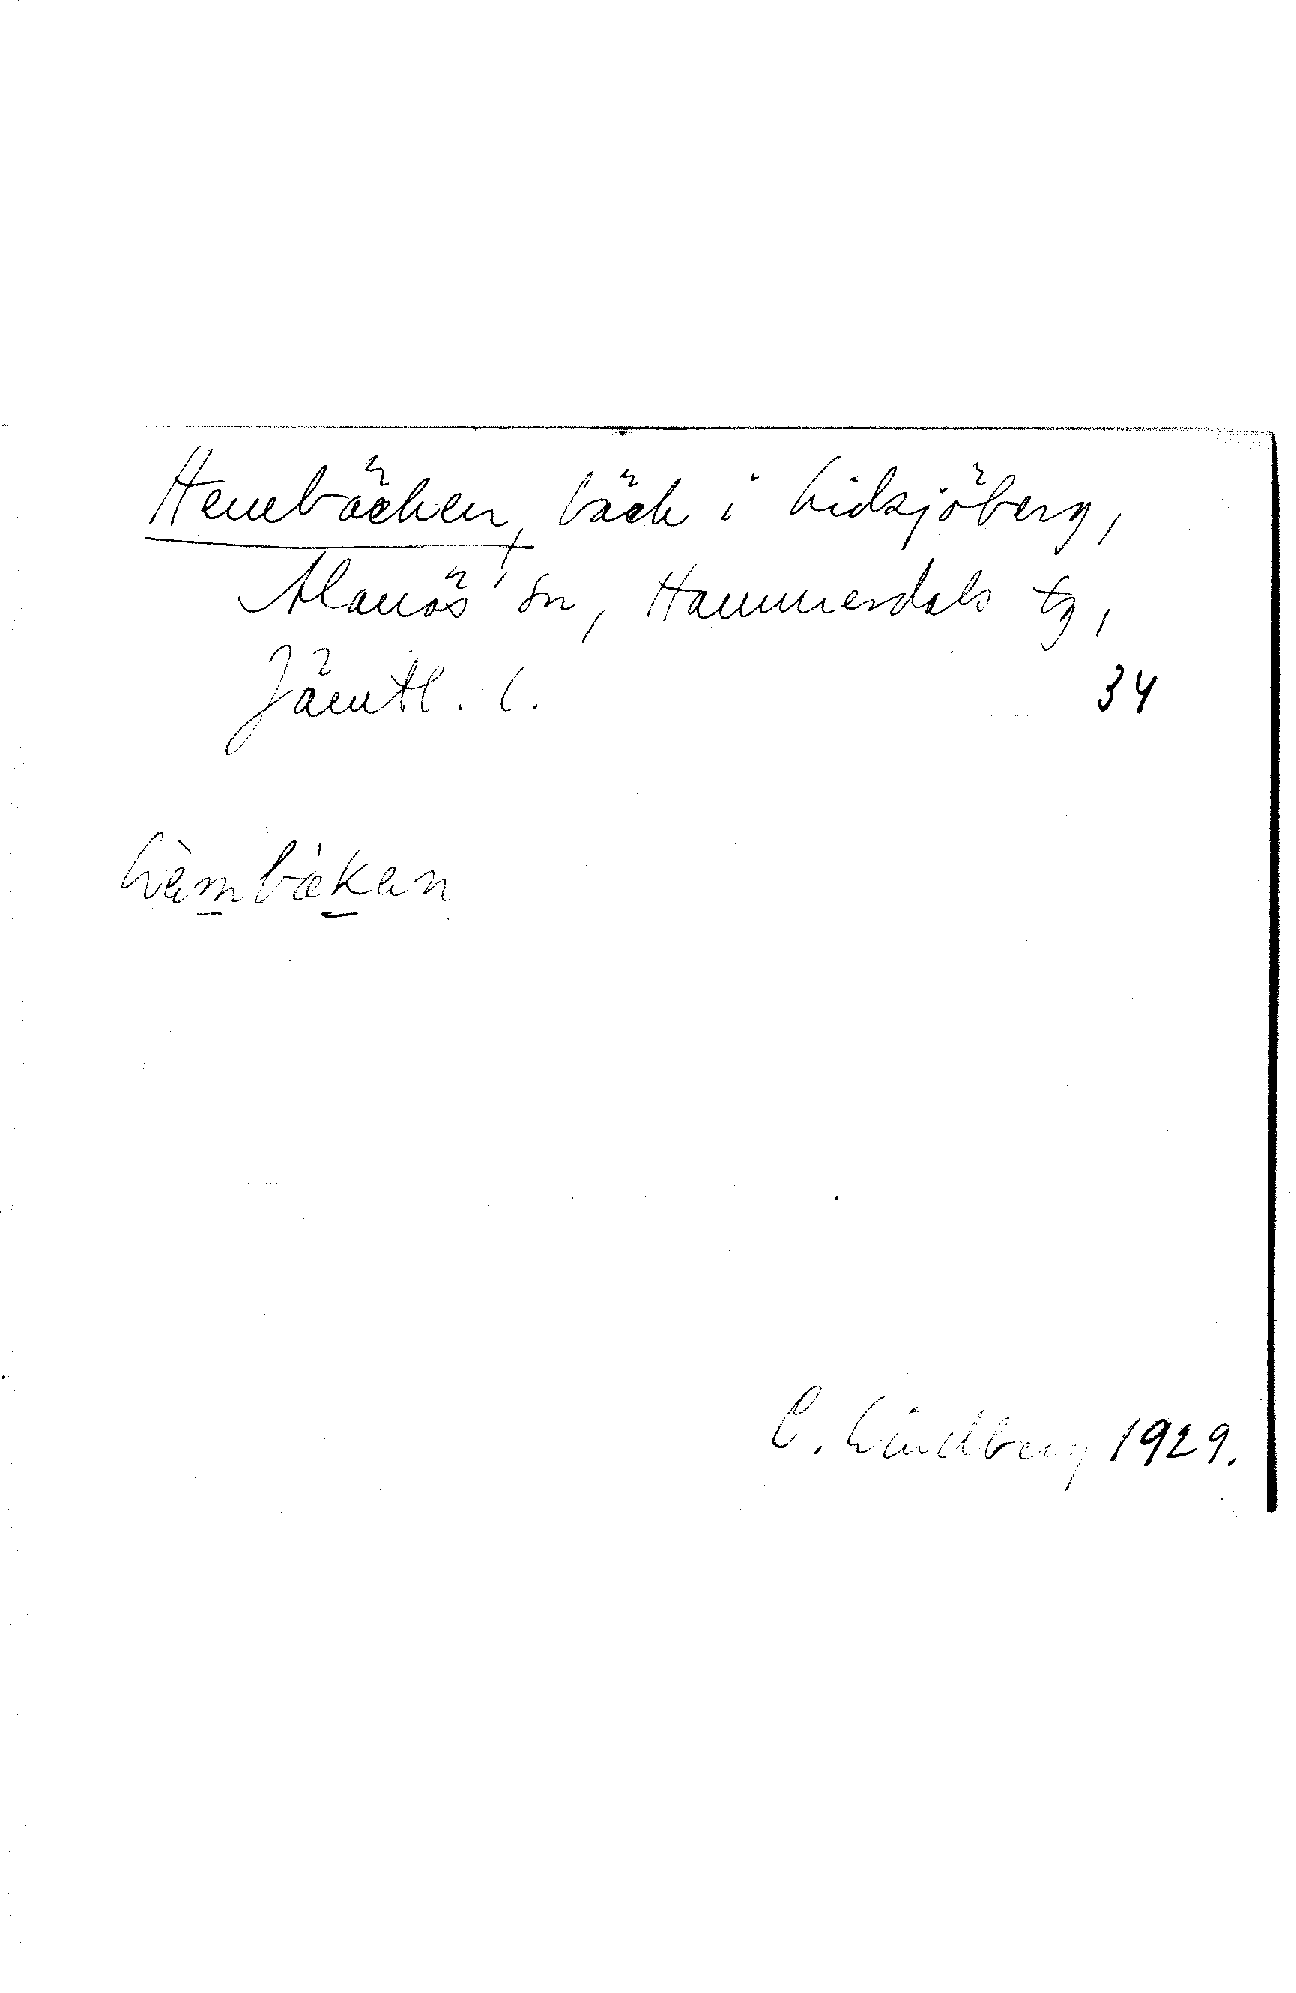 Hembäcken, bäck i Lidsjöberg,
Alanäs sn, Hammerdals tg,
Jämtl. l.
34
hèmbækan
C. Lindberg 1929.